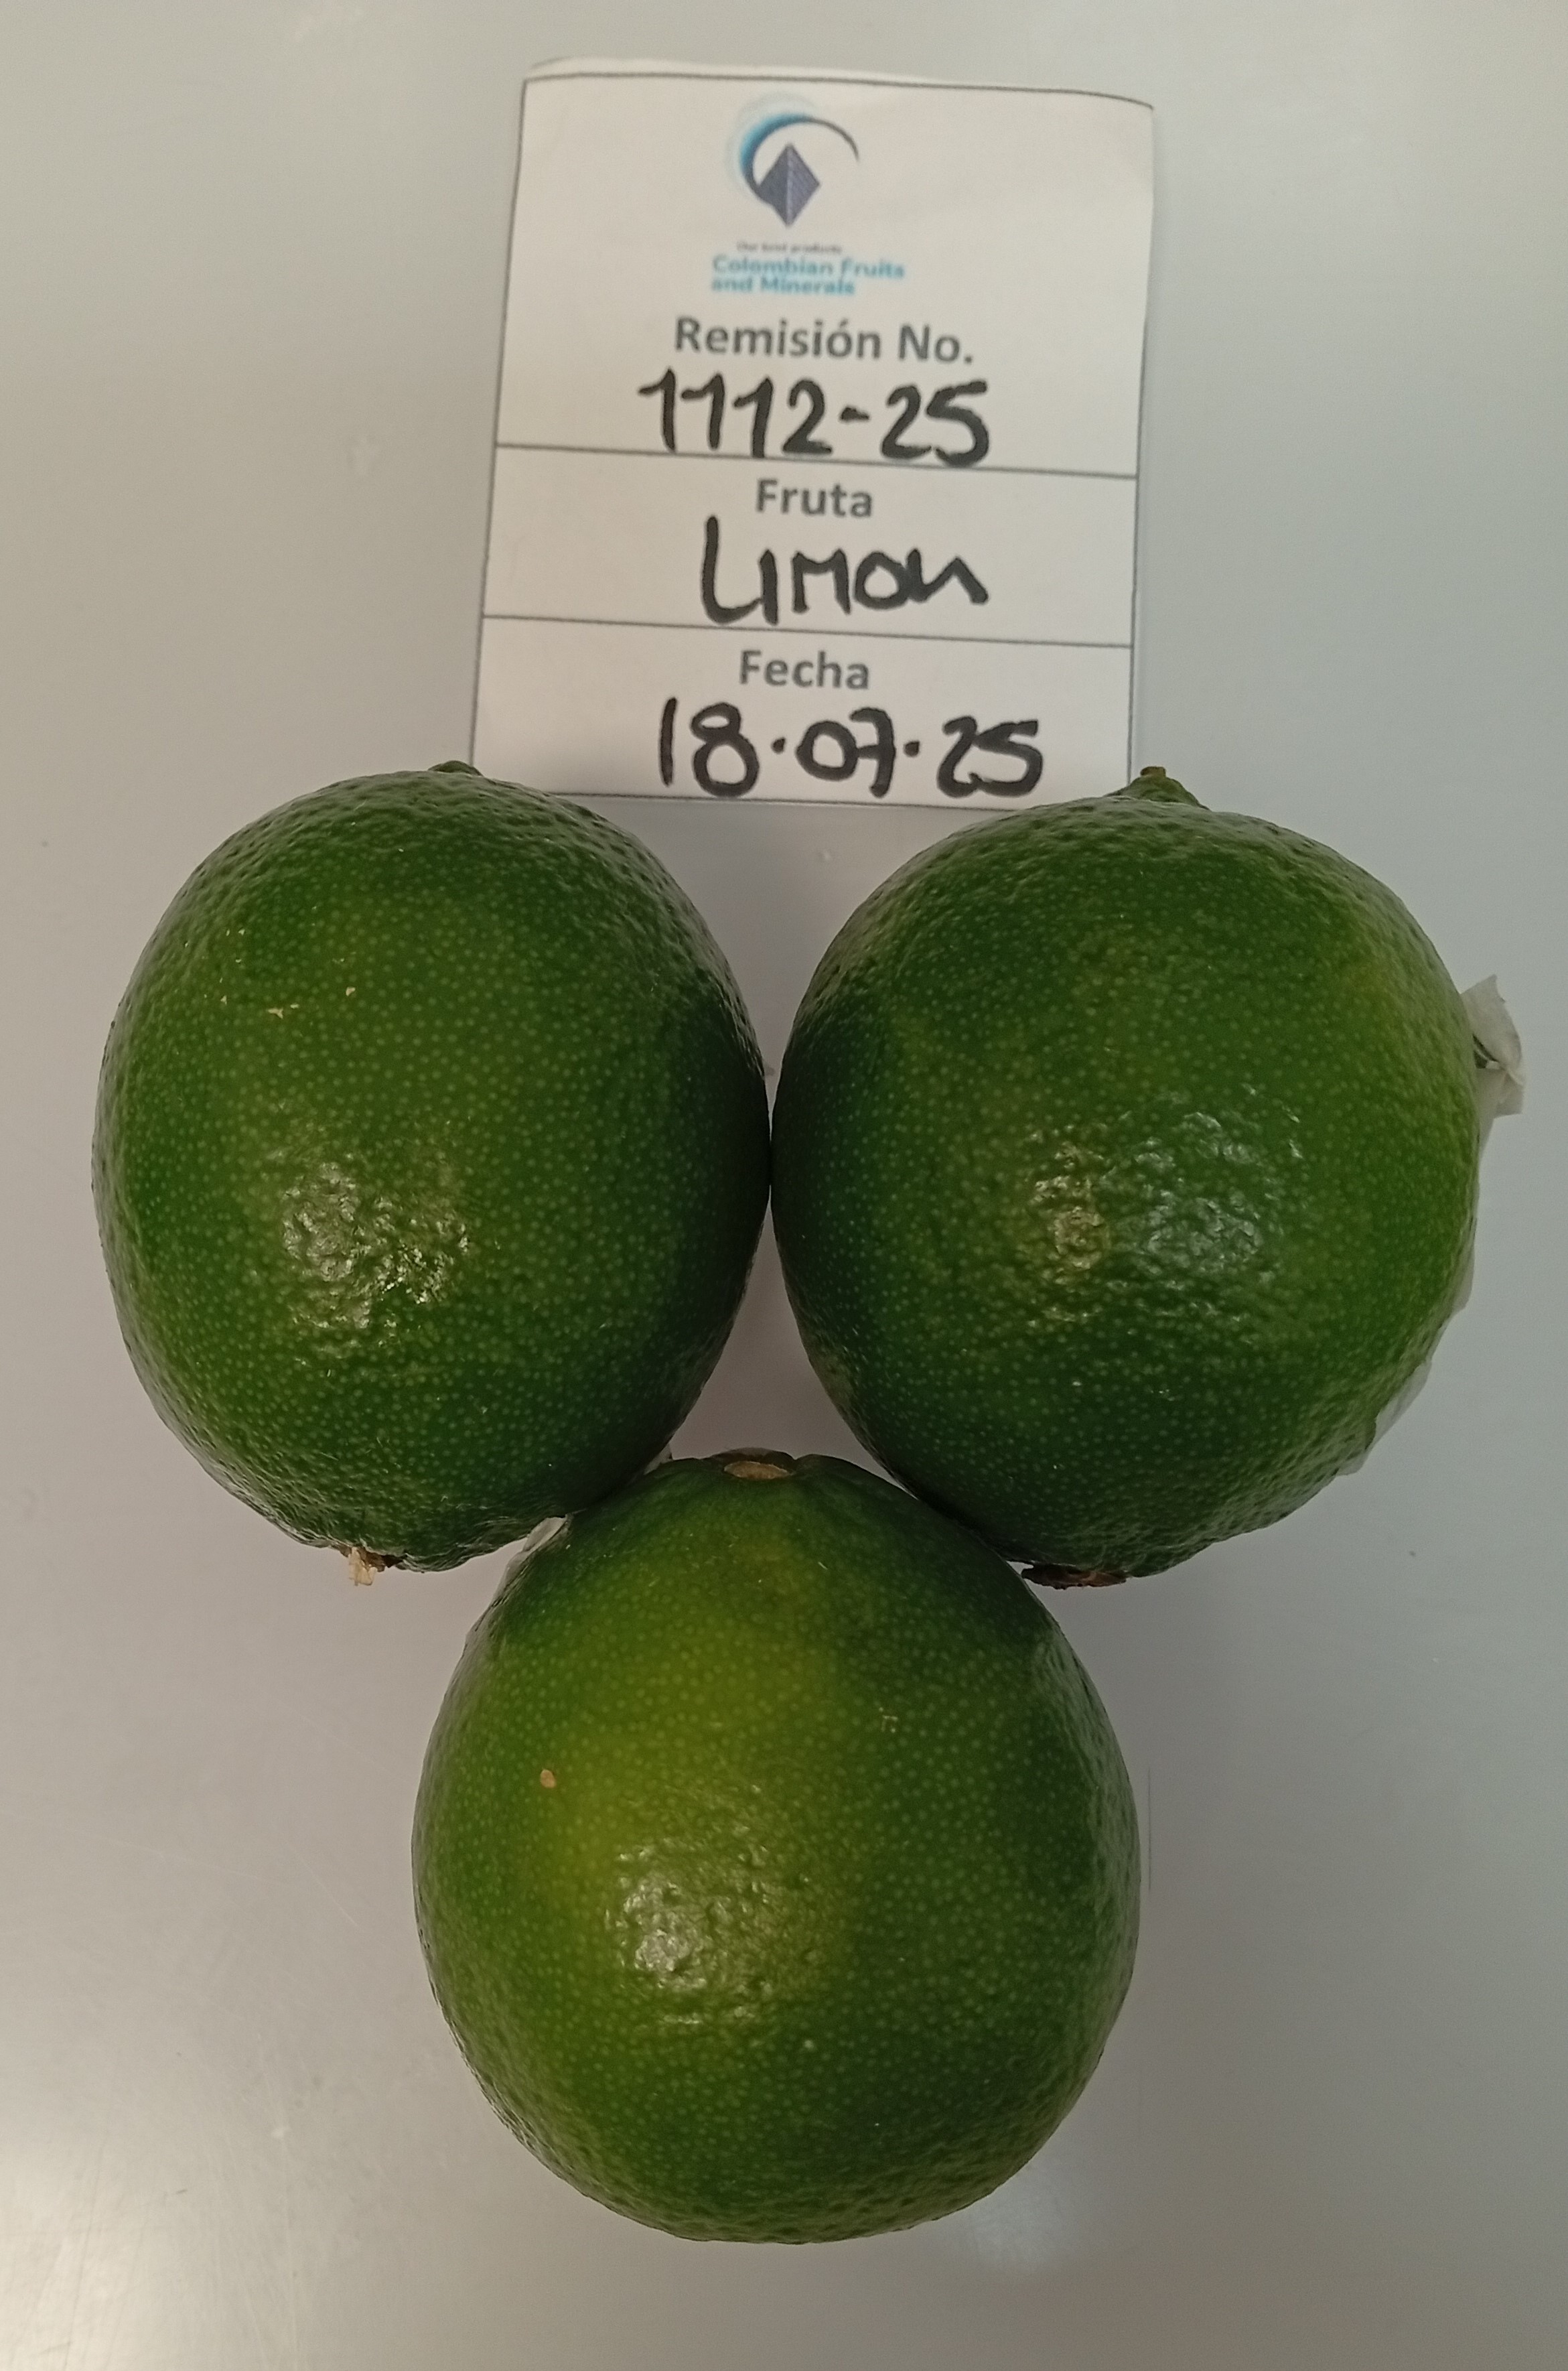 Our best products
Colombian Fruits
and Minerals
Remisión No.
1112-25
Fruta
LIMON
Fecha
18.07.25